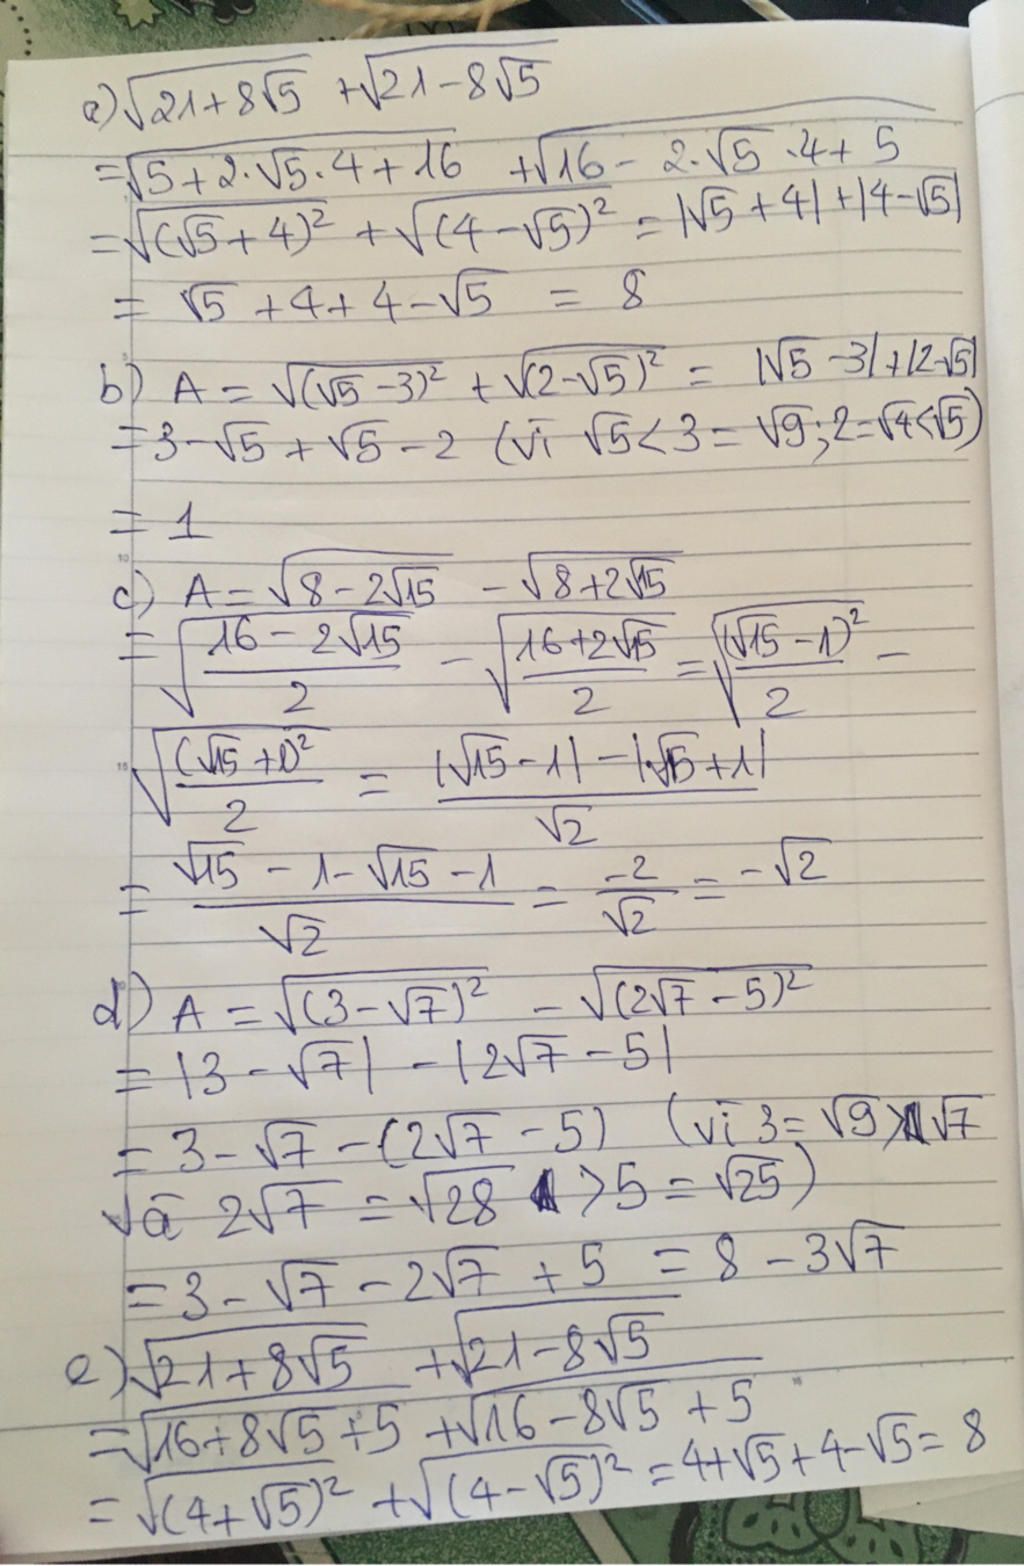 a) √(21+8√5) + √(21-8√5)
= √(5+2·√5·4+16) + √(16-2·√5·4+5)
= √((√5+4)²) + √((4-√5)²) = |√5+4|+|4-√5|
= √5+4+4-√5 = 8
b) A = √((√5-3)²) + √((2-√5)²) = |√5-3|+|2-√5|
= 3-√5+√5-2 (vì √5<3=√9; 2=√4<√5)
= 1
c) A = √(8-2√15) - √(8+2√15)
= √((16-2√15)/2) - √((16+2√15)/2) = √((√15-1)²/2) -
√((√15+1)²/2) = (|√15-1|-|√15+1|)/√2
= (√15-1-√15-1)/√2 = -2/√2 = -√2
d) A = √((3-√7)²) - √((2√7-5)²)
= |3-√7| - |2√7-5|
= 3-√7-(2√7-5) (vì 3=√9>√7
và 2√7 = √28 >5=√25)
= 3-√7-2√7+5 = 8-3√7
e) √(21+8√5) + √(21-8√5)
= √(16+8√5+5) + √(16-8√5+5)
= √((4+√5)²) + √((4-√5)²) = 4+√5+4-√5 = 8